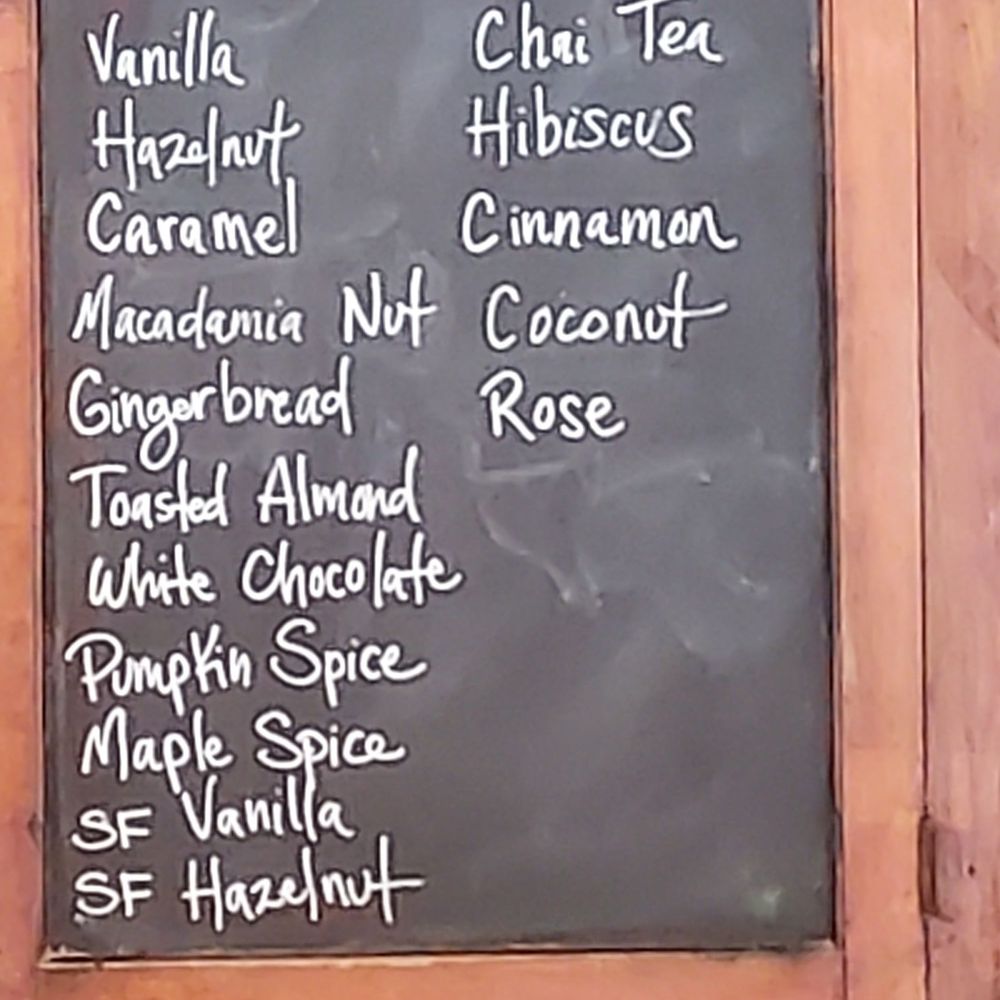 Vanilla
Hazelnut
Caramel
Macadamia Nut
Gingerbread
Toasted Almond
White Chocolate
Pumpkin Spice
Maple Spice
SF Vanilla
SF Hazelnut
Chai Tea
Hibiscus
Cinnamon
Coconut
Rose